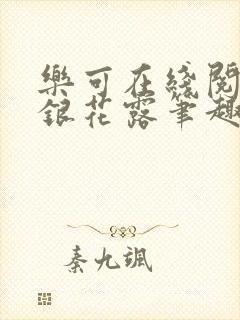 樂可在綫閱
銀花露筆趣
秦九颯